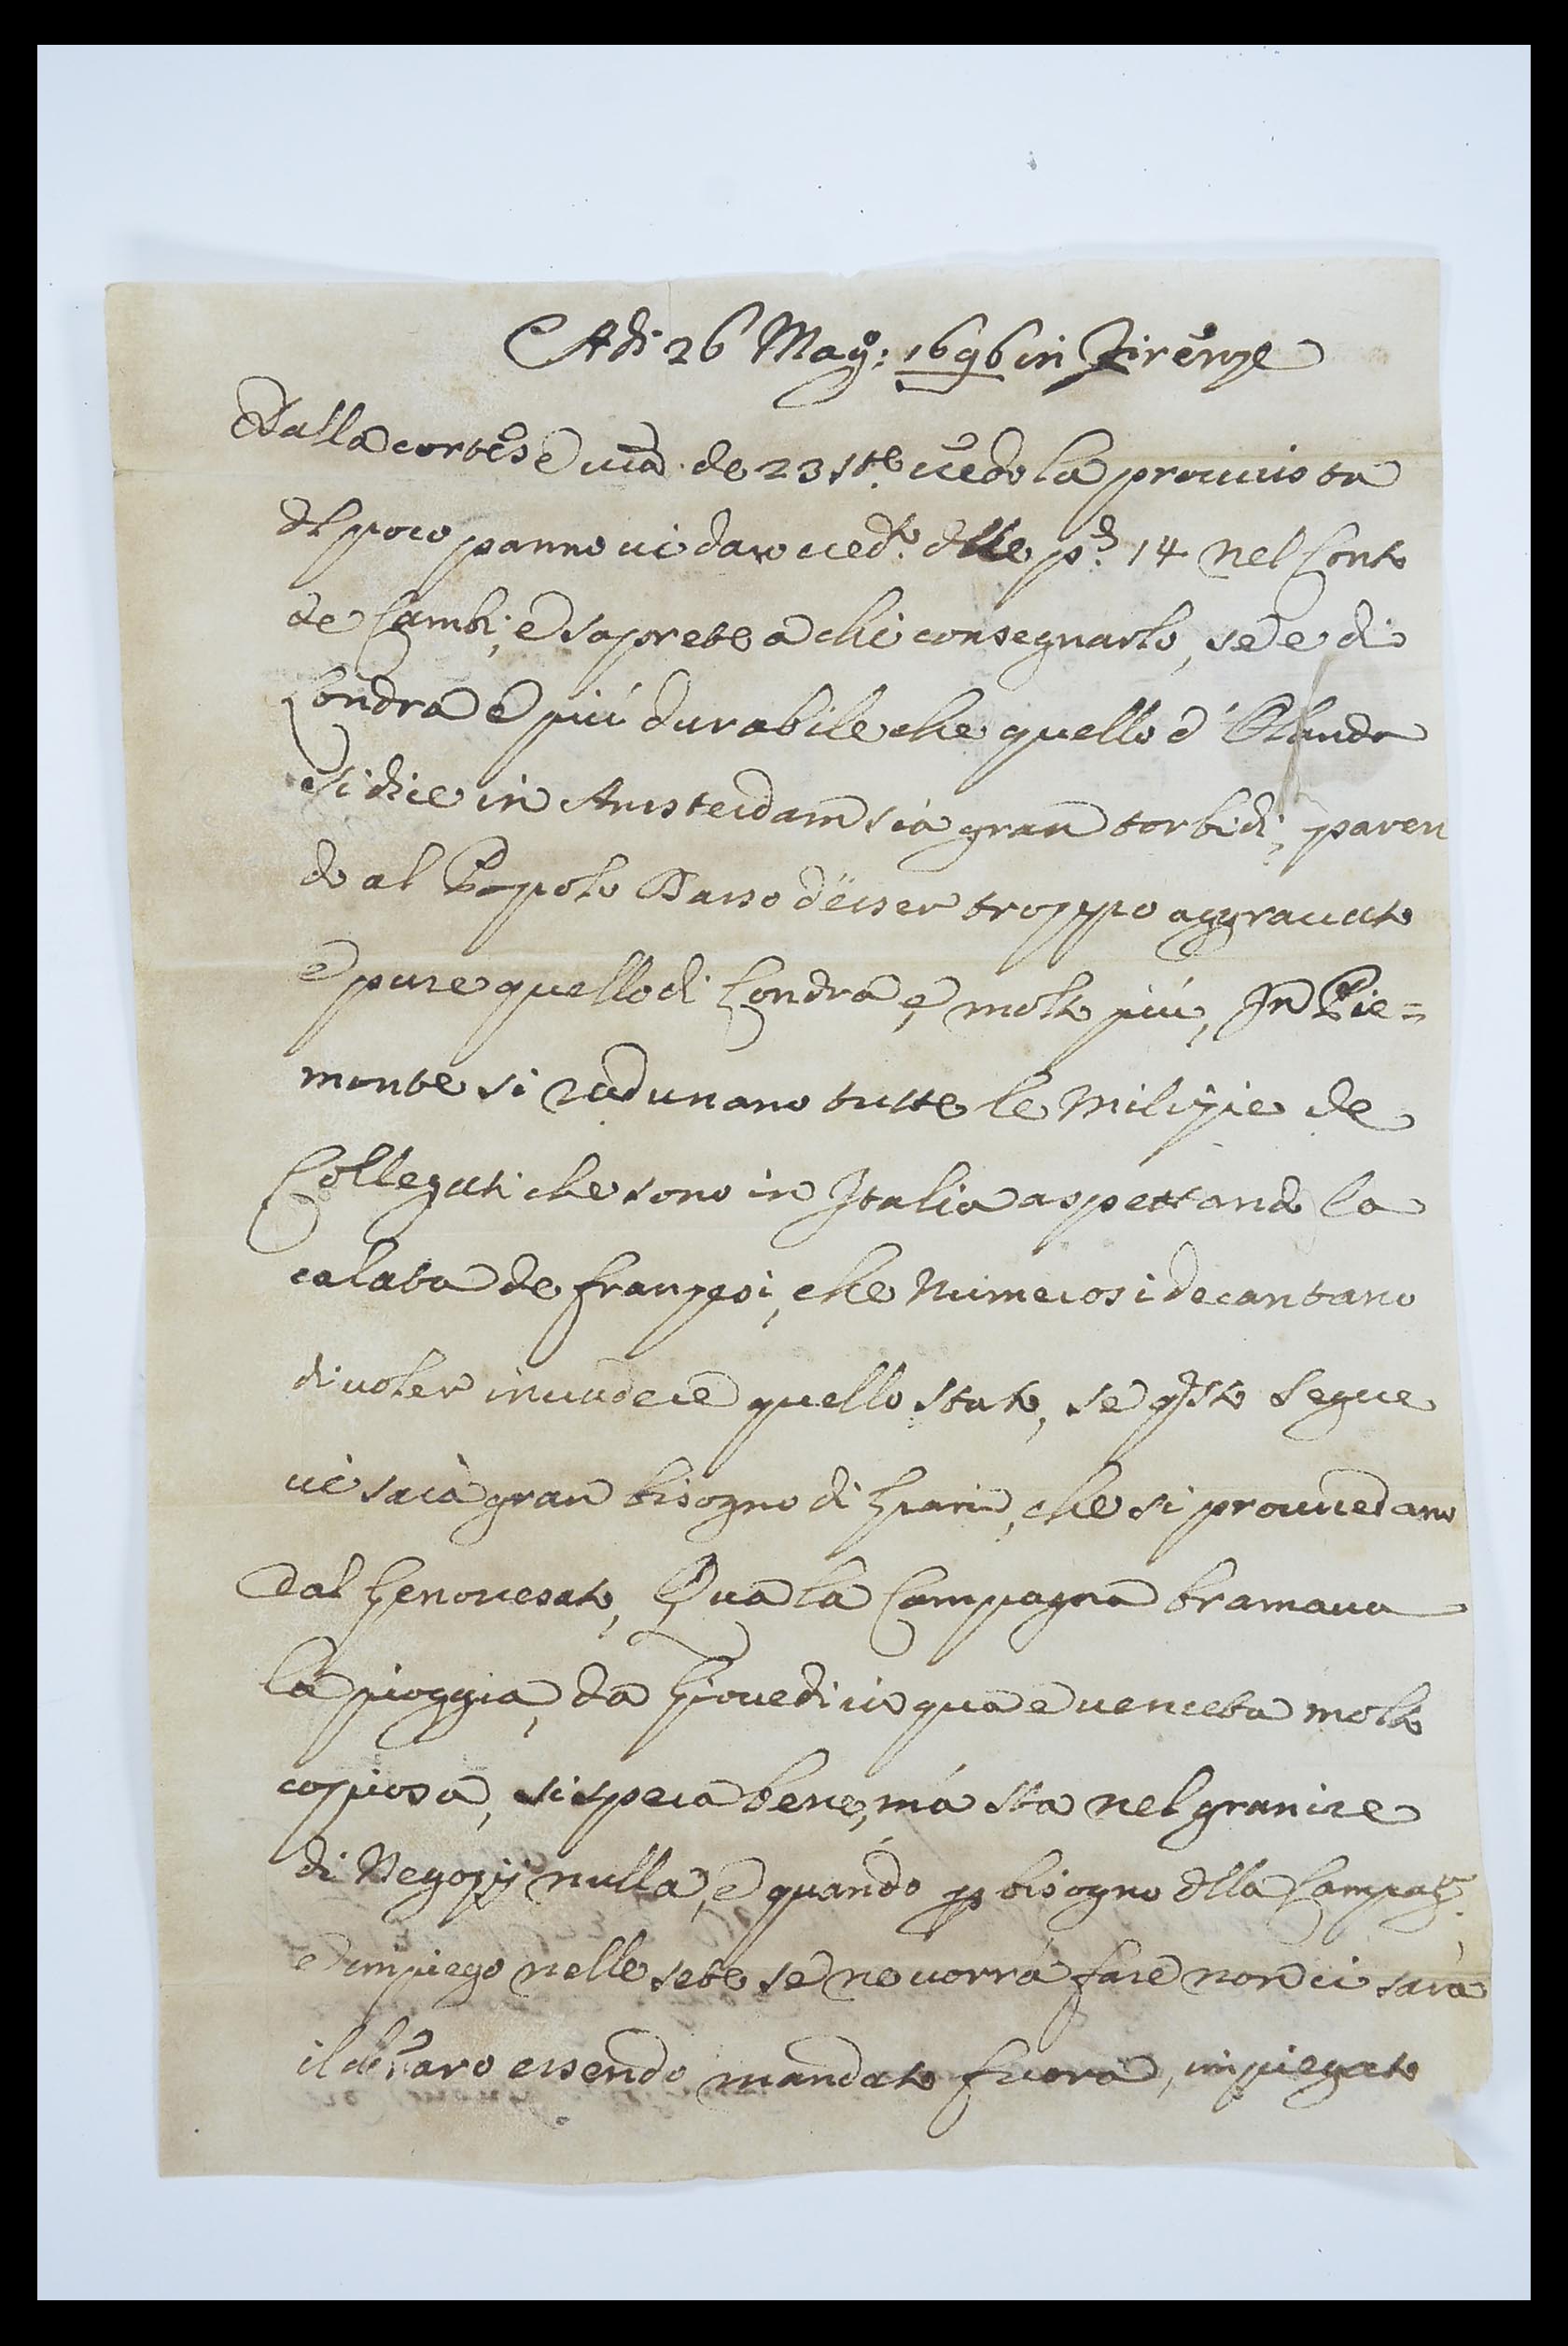 Adi 26 Mag.o: 1696 in Firenze
Dalla cortese v̅r̅a de 23 st.e vedo la provvista
del poco panno vi daro cred.o delle p.d 14 nel Conto
de Cambi, e saprete a chi consegnarlo, se e di
Londra e più durabile che quello d'Olanda
si dice in Amsterdam sia gran torbidi, paren
do al Popolo Basso d'esser troppo aggravato
e pure quello di Londra e, molto più, In Pie=
monte si radunano tutte le Milizie de
Collegati che sono in Italia aspettando la
calata de franzesi, che Numerosi decantano
di voler invadere quello stato, se q̅sto segue
vi sarà gran bisogno di Grani, che si provvedano
dal Genovesato, Qua la Campagna bramava
la pioggia, da Giovedi in qua e venceta molto
copiosa, si spera bene, mà sta nel granire
di Negozij nulla, e quando p bisogno della Campag.a
ed impiego nelle sete se ne vorrà fare non ci sarà
il denaro essendo mandato fuora, impiegato